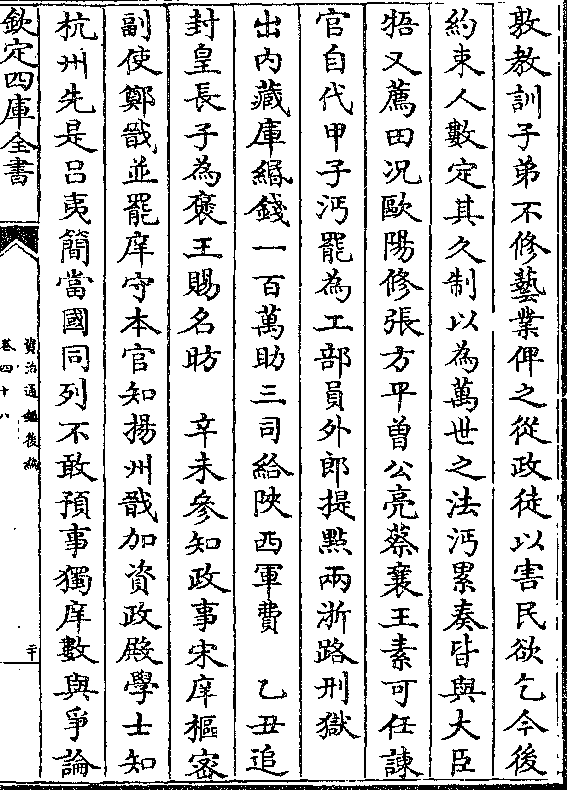 敦教訓子弟不修藝業俾之從政徒以害民欲乞今後
約束人數定其久制以為萬世之法沔累奏皆與大臣
牾又薦田况歐陽修張方平曾公亮蔡襄王素可任諫
官自代甲子沔罷為工部員外郎提㸃兩浙路刑獄
出内藏庫緡錢一百萬助三司給陜西軍費　乙丑追
封皇長子為襃王賜名昉　辛未參知政事宋庠樞密
副使鄭戩並罷庠守本官知揚州戩加資政殿學士知
杭州先是吕夷簡當國同列不敢預事獨庠數與爭論
欽定四庫全書
資治通鑑後編
卷四十八
二十